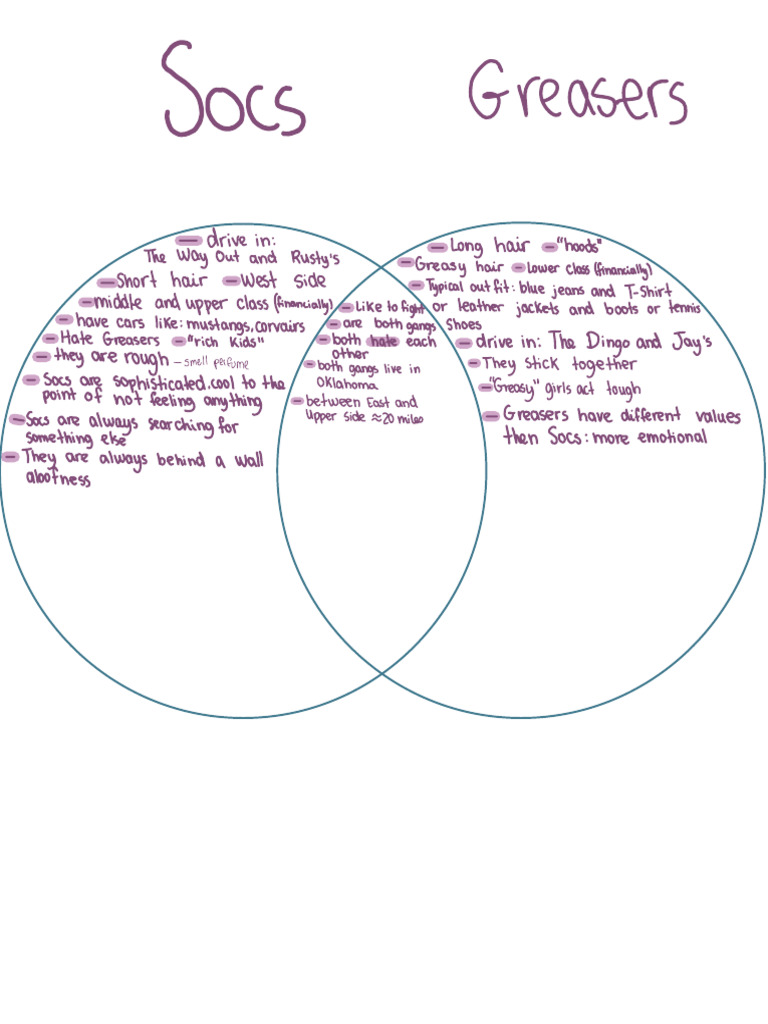 Socs
Greasers
– drive in:
The Way Out and Rusty's
– Short hair – West side
– middle and upper class (financially)
– have cars like: mustangs, corvairs
– Hate Greasers – "rich Kids"
– they are rough – smell perfume
– Socs are sophisticated. cool to the
point of not feeling anything
– Socs are always searching for
something else
– They are always behind a wall
aloofness
– Like to fight
– are both gangs
– both hate each
other
– both gangs live in
Oklahoma
– between East and
Upper side ≈ 20 miles
– Long hair – "hoods"
– Greasy hair – Lower class (financially)
– Typical outfit: blue jeans and T-Shirt
or leather jackets and boots or tennis
Shoes
– drive in: The Dingo and Jay's
– They stick together
– "Greasy" girls act tough
– Greasers have different values
then Socs: more emotional